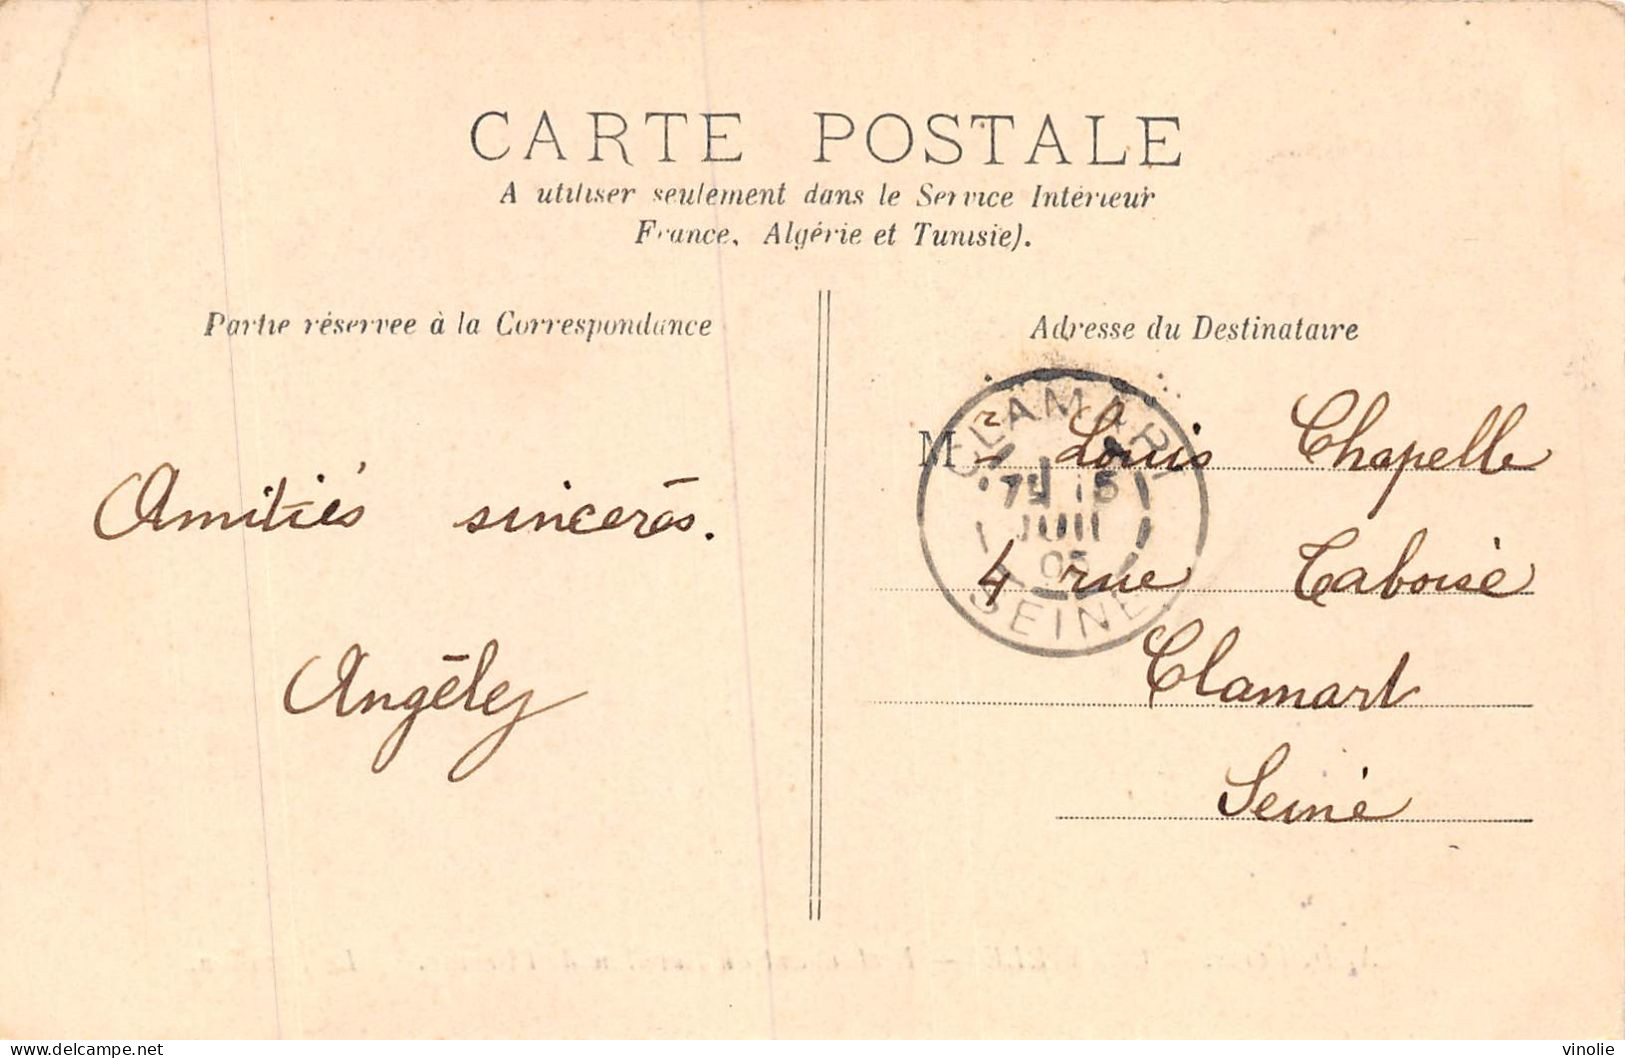 CARTE POSTALE
A utiliser seulement dans le Service Intérieur
France, Algérie et Tunisie).
Partie réservée à la Correspondance
Adresse du Destinataire
Amitiés sincères.
Angèley
Mr Louis Chapelle
4 rue Taboise
Clamart
Seine
CLAMART
7E 15
JUIN
05
SEINE
delcampe.net
vinolie